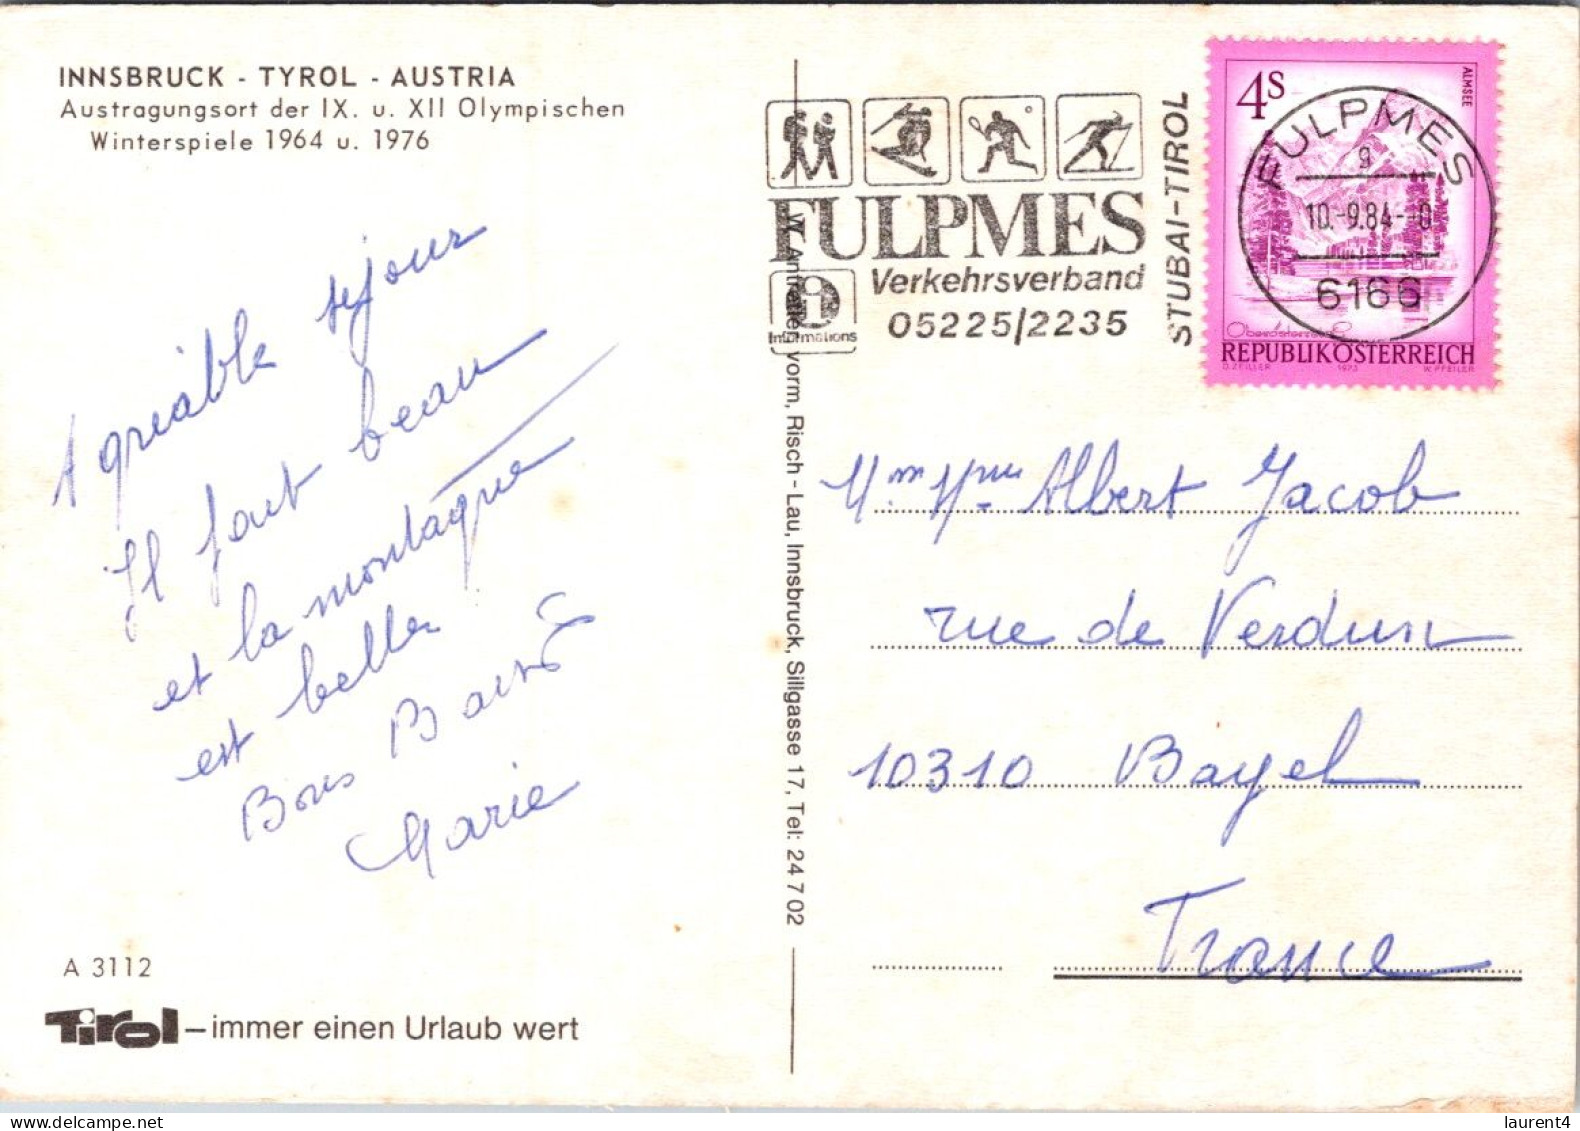 INNSBRUCK - TYROL - AUSTRIA
Austragungsort der IX. u. XII Olympischen
Winterspiele 1964 u. 1976
Agréable séjour
Il fait beau
et la montagne
est belle
Bons Baisers
Marie
A 3112
Tirol – immer einen Urlaub wert
W. Antretter, vorm, Risch - Lau, Innsbruck, Sillgasse 17, Tel: 24 7 02
FULPMES
Verkehrsverband
05225/2235
Informations
STUBAI-TIROL
4S
ALMSEE
Oberösterreich
REPUBLIK ÖSTERREICH
O. ZEILLER 1973 W. PFEILER
FULPMES
g
10.-9.84-
6166
Mr Mme Albert Jacob
rue de Verdun
10310 Bayel
France
delcampe.net
laurent4